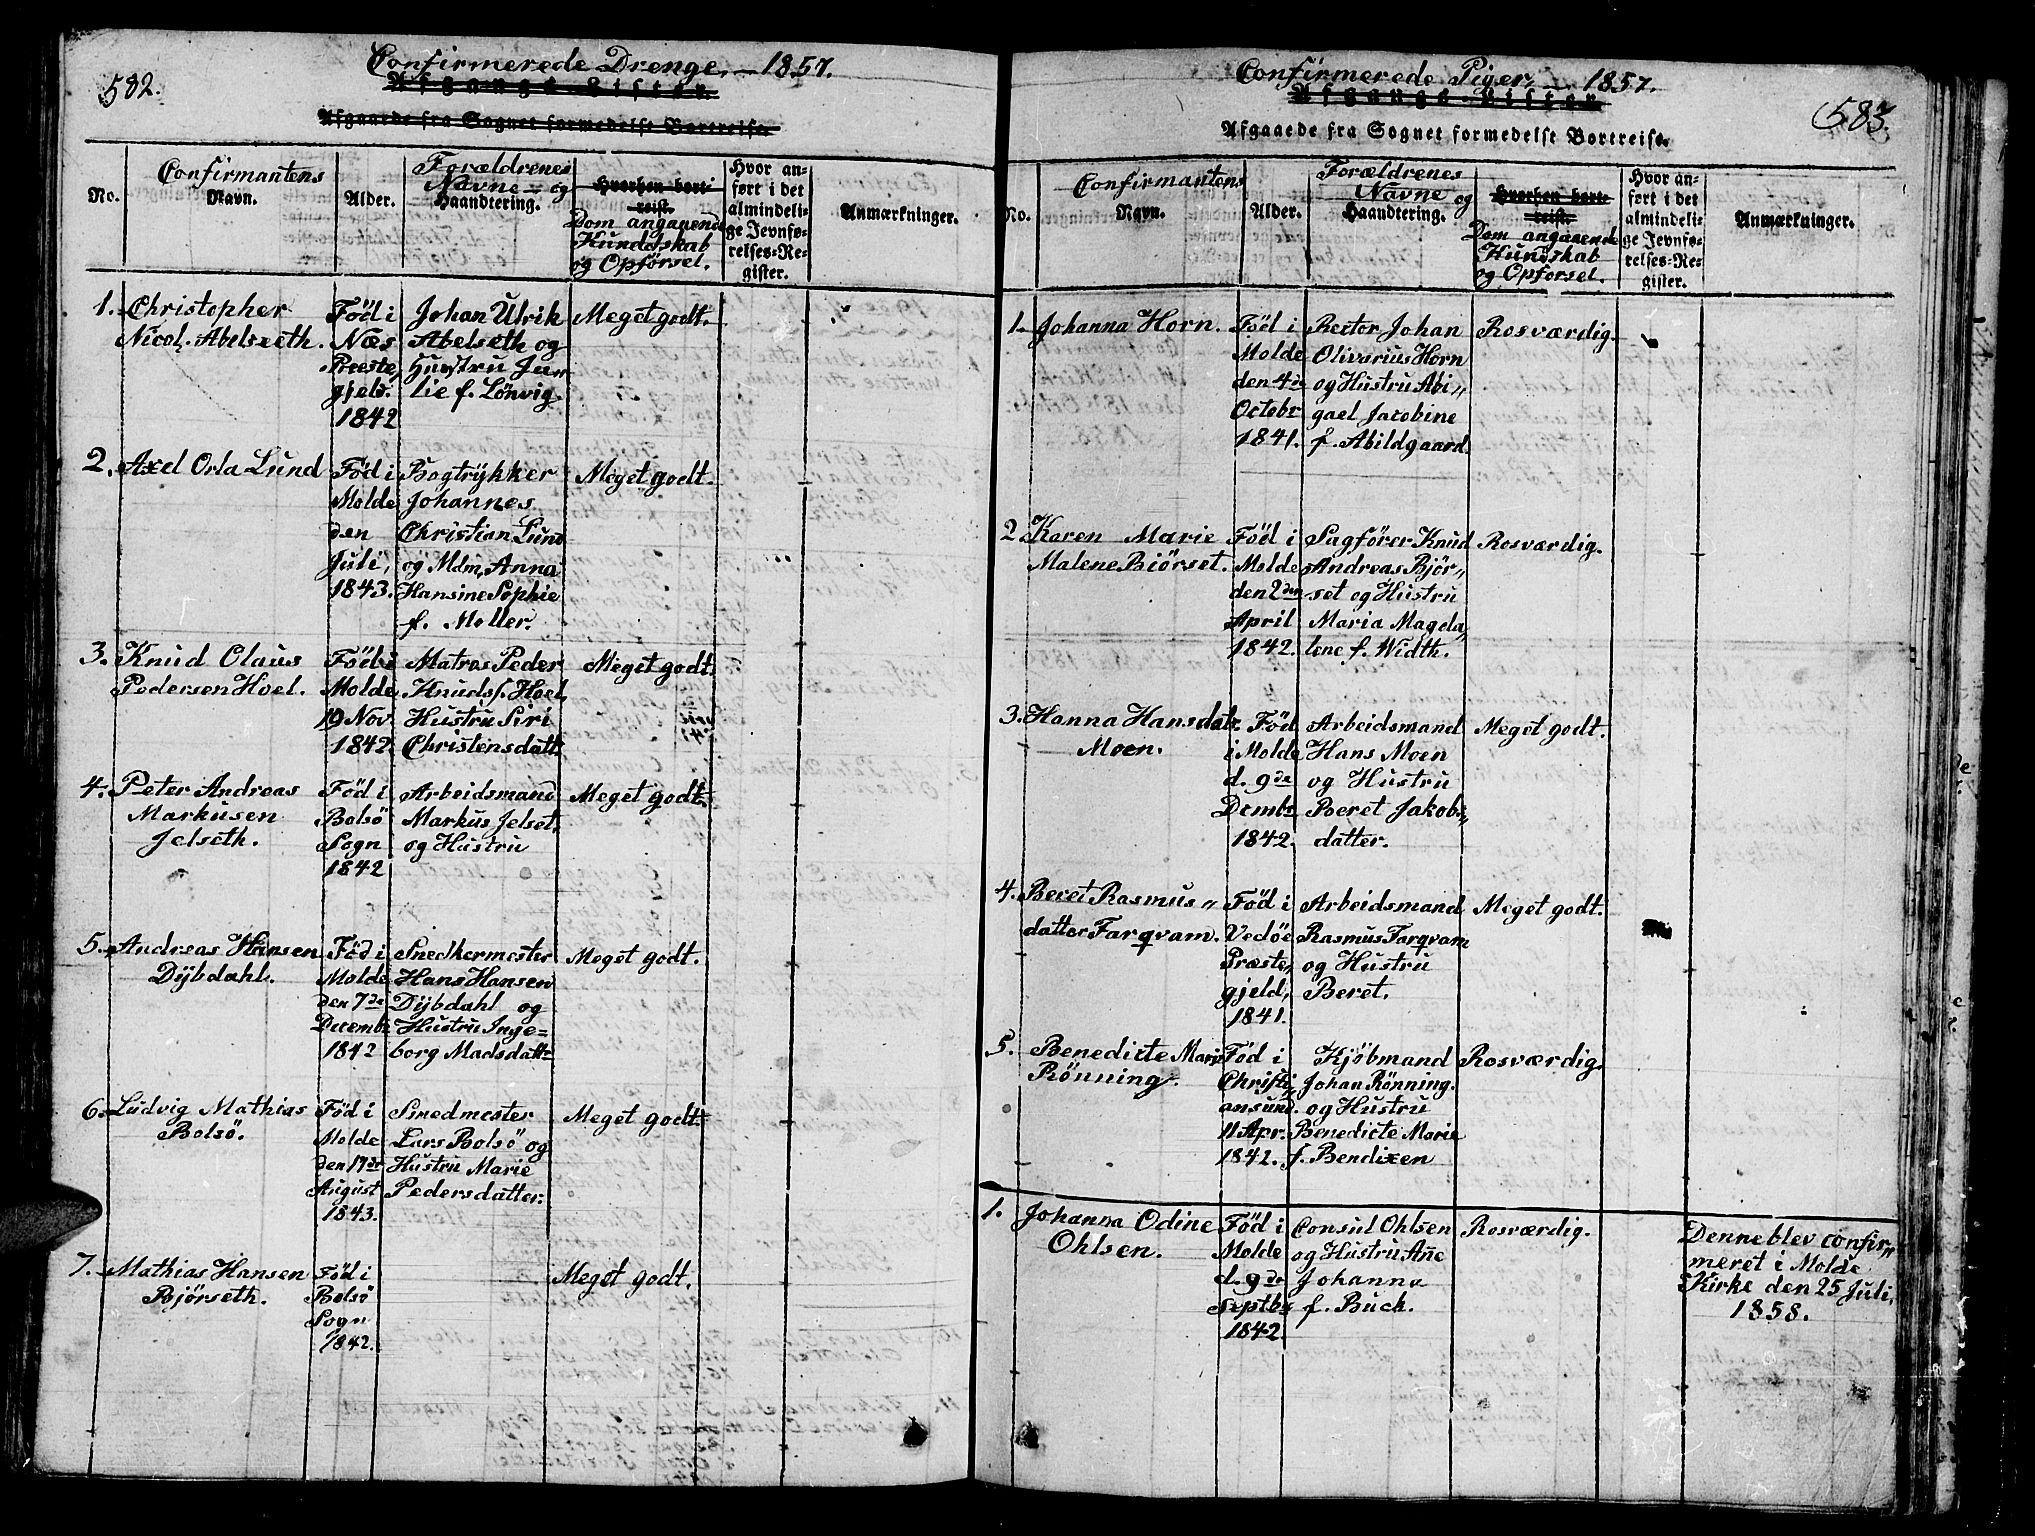 582.
Confirmerede Drenge, — 1857.
Afgangs-Lister.
Afgaaede fra Sognet formedelst Bortreise.
No.
Confirmantens
Navn.
Alder.
Forældrenes
Navne og
Haandtering.
Hvorhen bort-
reist.
Dom angaaende
Kundskab
og Opførsel.
Hvor an-
ført i det
almindeli-
ge Jevnfø-
relses-Re-
gister.
Anmærkninger.
1. Christopher
Nicol. Abelseth.
Föd i
Næs
Preste„
gjeld.
1842
Johan Ulrik
Abelseth og
Hustru Ju„
lie f. Lönvig.
Meget godt.
2. Axel Orla Lund
Föd i
Molde
den
Juli,
1843.
Bogtrÿkker
Johannes
Christian Lund
og Mdm. Anna
Hansine Sophie
f. Moller.
Meget godt.
3. Knud Olaus
Pedersen Hoel.
Föd i
Molde
19 Nov.
1842.
Matros Peder
Knuds. Hoel,
Hustru Siri
Christensdatt.
Meget godt.
4. Peter Andreas
Markusen
Jelseth.
Föd i
Bolsö
Sogn
1842
Arbeidsmand
Markus Jelset,
og Hustru
Meget godt.
5. Andreas Hansen
Dÿbdahl.
Föd i
Molde
den 7de
Decembr
1842
Snedkermester
Hans Hansen
Dÿbdahl og
Hustru Inge=
borg Madsdattr
Meget godt.
6. Ludvig Mathias
Bolsö.
Föd i
Molde
den 17de
August
1843.
Smedmester
Lars Bolsö og
Hustru Marie
Pedersdatter.
Meget godt.
7. Mathias Hansen
Bjørseth.
Föd i
Bolsö
Sogn
1842.
Meget godt.
583.
Confirmerede Piger, — 1857.
Afgangs-Lister.
Afgaaede fra Sognet formedelst Bortreise.
No.
Confirmantens
Navn.
Alder.
Forældrenes
Navne og
Haandtering.
Hvorhen bort-
reist.
Dom angaaende
Kundskab
og Opførsel.
Hvor an-
ført i det
almindeli-
ge Jevnfø-
relses-Re-
gister.
Anmærkninger.
1. Johanna Horn.
Föd i
Molde
den 4de
Octobr
1841.
Rector Johan
Olivarius Horn
og Hustru Abi„
gael Jacobine
f. Abildgaard.
Rosværdig.
2 Karen Marie
Malene Biörset.
Föd i
Molde
den 2den
April
1842.
Sagförer Knud
Andreas Bjør„
set og Hustru
Maria Magda„
lene f. Width.
Rosværdig.
3. Hanna Hansdatr.
Moen.
Föd
i Molde
d. 9de
Dcembr
1842.
Arbeidsmand
Hans Moen
og Hustru
Beret Jakobs„
datter.
Meget godt.
4. Beret Rasmus„
datter Farqvam.
Föd i
Vedöe
Præste„
gjeld,
1841.
Arbeidsmand
Rasmus Farqvam
og Hustru
Beret.
Meget godt.
5. Benedicte Marie
Rönning.
Föd i
Christi„
ansund.
11 Apr.
1842.
Kjöbmand
Johan Rönning.
og Hustru
Benedicte Marie
f. Bendixen
Rosværdig.
1. Johanna Odine
Ohlsen.
Föd i
Molde
d. 9de
Septbr
1842
Consul Ohlsen
og Hustru Ane
Johanna
f. Buck.
Rosværdig.
Denne blev confir„
meret i Molde
Kirke den 25 Juli,
1858.